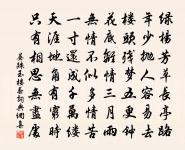 綠楊芳草長亭路
年少拋人容易去
樓頭殘夢五更鐘
花底離情三月雨
無情不似多情苦
一寸還成千萬縷
天涯地角有窮時
只有相思無盡處
晏殊玉樓春詞